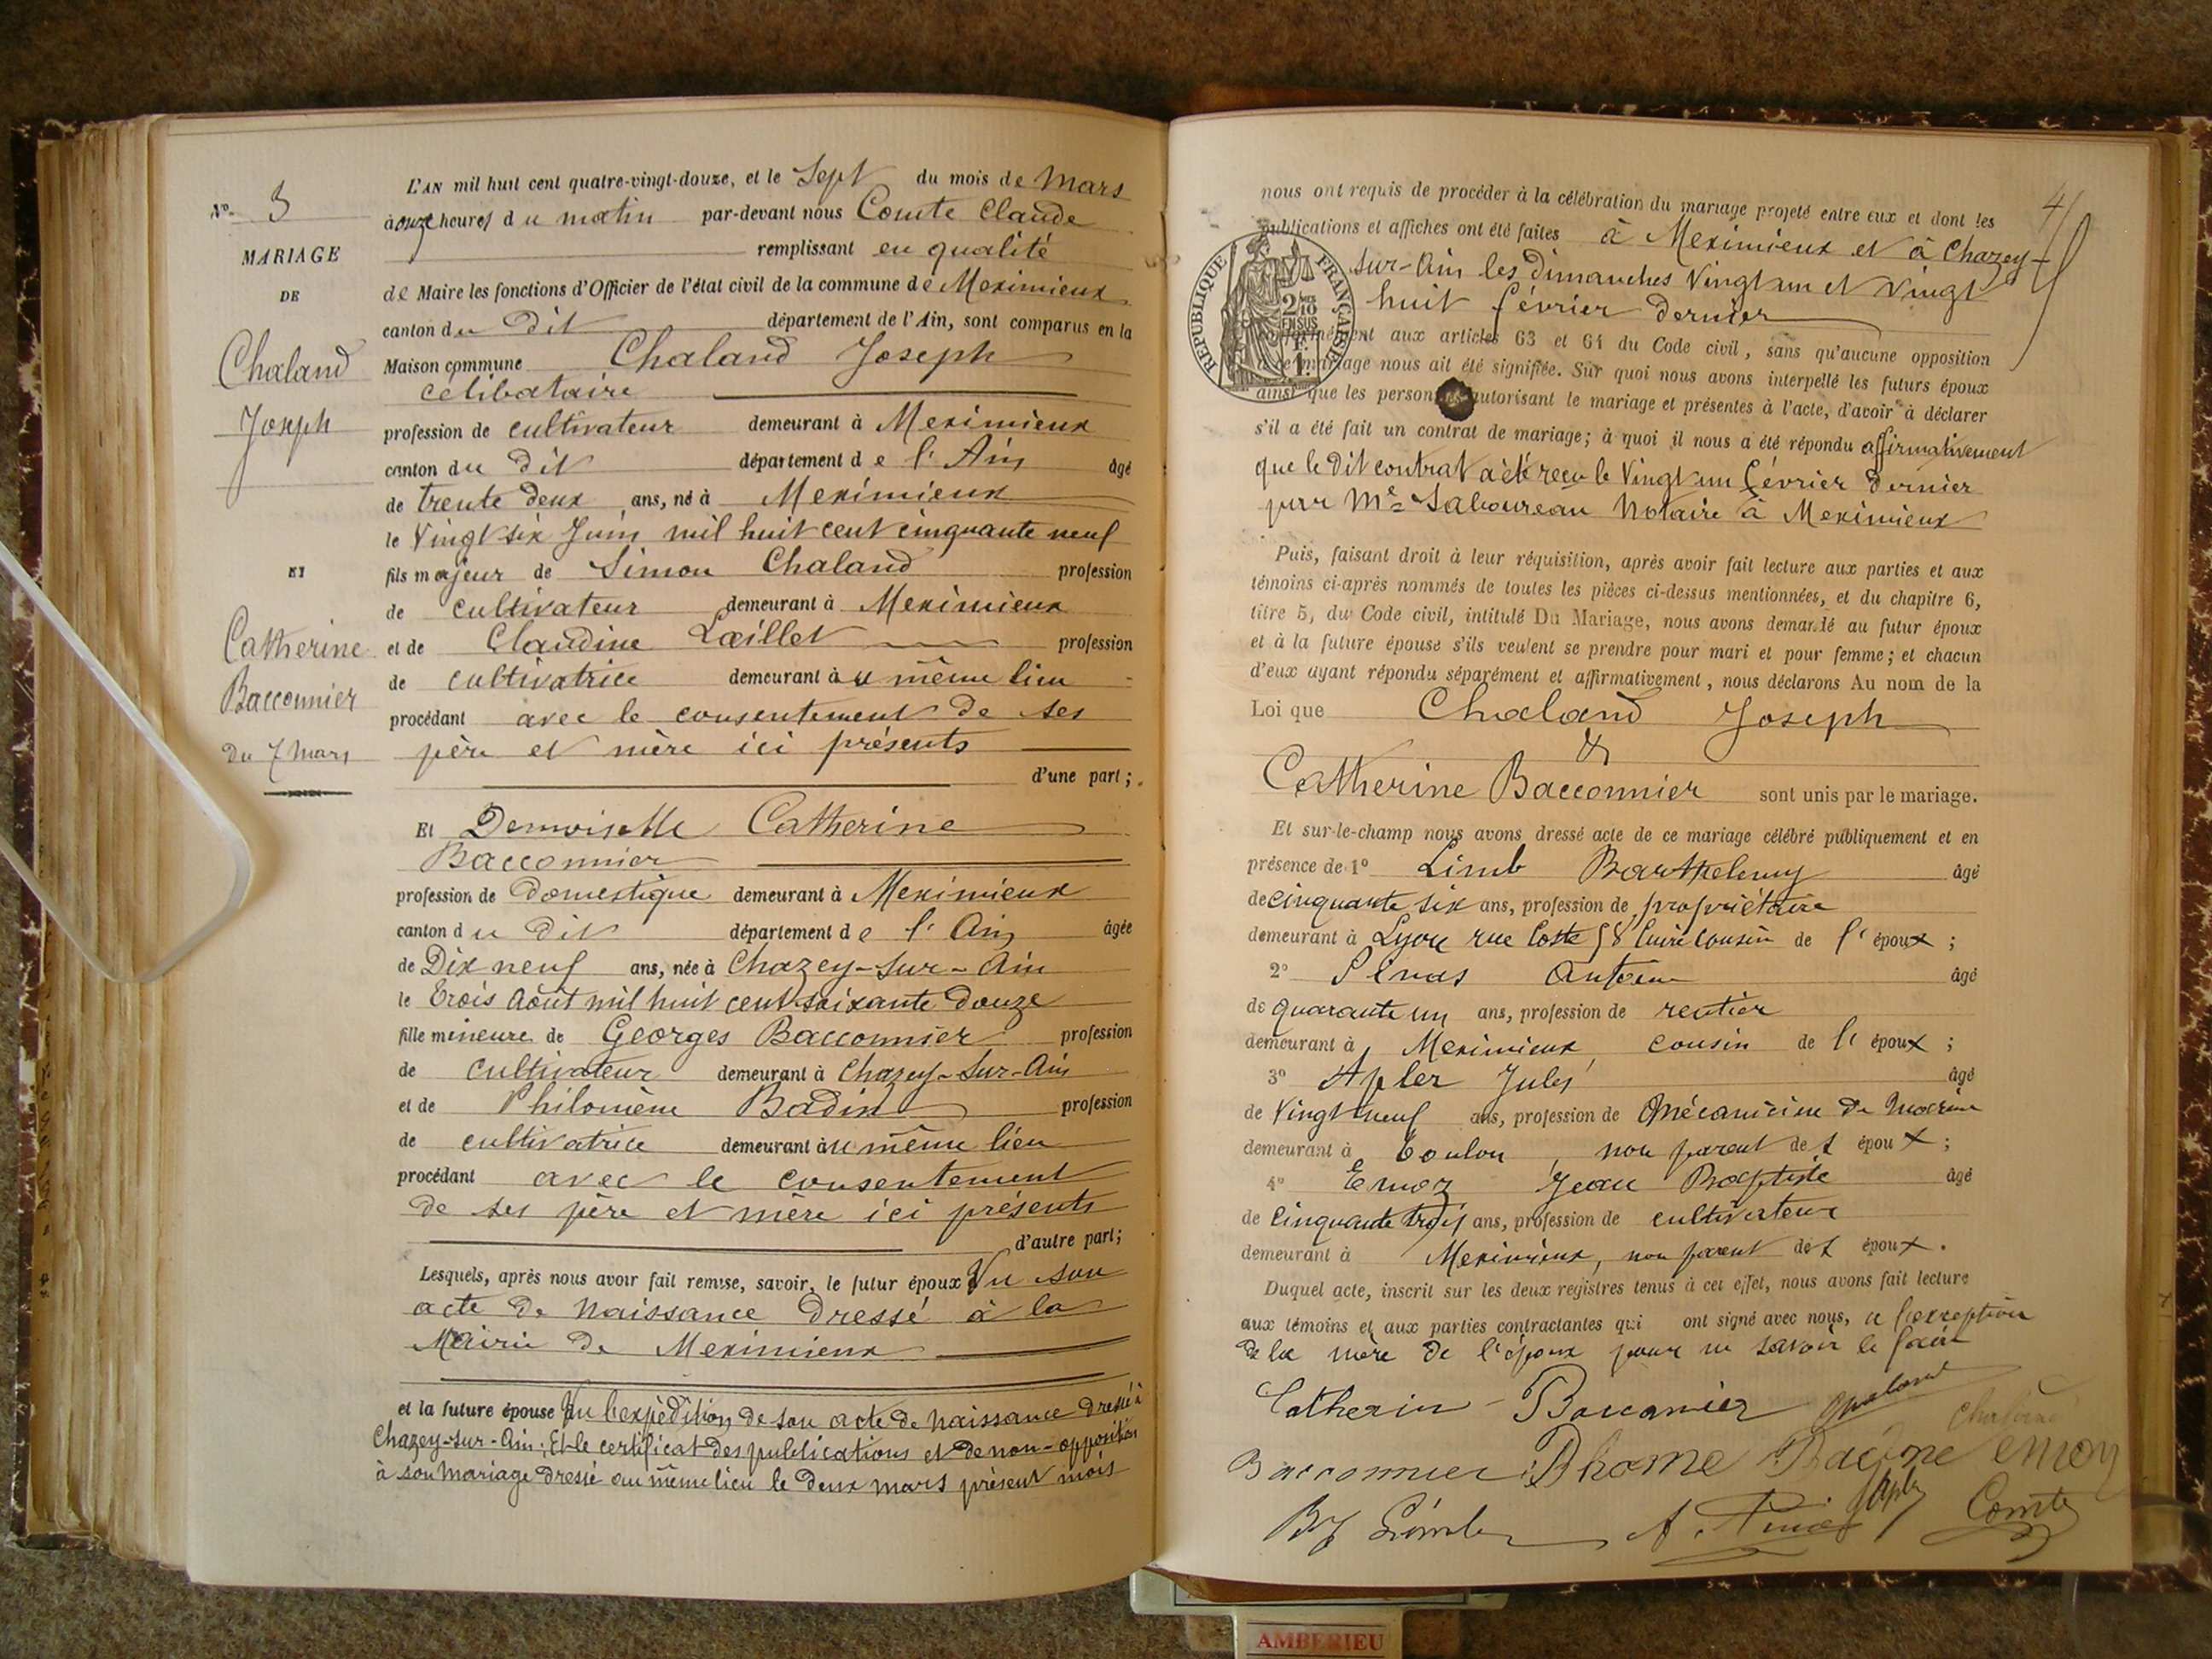 N° 3
MARIAGE
DE
Chaland
Joseph
ET
Catherine
Bacconnier
Du 7 Mars
L'AN mil huit cent quatre-vingt-douze, et le Sept du mois de Mars
à onze heures du matin par-devant nous Comte Claude
remplissant en qualité
de Maire les fonctions d'Officier de l'état civil de la commune de Meximieux
canton du dit département de l'Ain, sont comparus en la
Maison commune Chaland Joseph
célibataire
profession de cultivateur demeurant à Meximieux
canton du dit département de l'Ain âgé
de trente deux ans, né à Meximieux
le Vingt six Juin mil huit cent cinquante neuf
fils majeur de Simon Chaland profession
de cultivateur demeurant à Meximieux
et de Claudine Lœillet profession
de cultivatrice demeurant au même lieu
procédant avec le consentement de ses
père et mère ici présents
d'une part ;
Et Demoiselle Catherine
Bacconnier
profession de domestique demeurant à Meximieux
canton du dit département de l'Ain âgée
de Dix neuf ans, née à Chazey-sur-Ain
le trois Août mil huit cent soixante douze
fille mineure de Georges Bacconnier profession
de cultivateur demeurant à Chazey-sur-Ain
et de Philomène Badin profession
de cultivatrice demeurant au même lieu
procédant avec le consentement
de ses père et mère ici présents
d'autre part ;
Lesquels, après nous avoir fait remise, savoir, le futur époux Vu son
acte de naissance dressé à la
Mairie de Meximieux
et la future épouse Vu l'expédition de son acte de naissance dressé à
Chazey-sur-Ain ; Et le certificat des publications et de non-opposition
à son mariage dressé au même lieu le deux mars présent mois
4
nous ont requis de procéder à la célébration du mariage projeté entre eux et dont les
publications et affiches ont été faites à Meximieux et à Chazey-
sur-Ain les dimanches Vingt un et Vingt
huit février dernier
RÉPUBLIQUE FRANÇAISE
2/10
EN SUS
F.
1
conformément aux articles 63 et 64 du Code civil, sans qu'aucune opposition
à ce mariage nous ait été signifiée. Sur quoi nous avons interpellé les futurs époux
ainsi que les personnes autorisant le mariage et présentes à l'acte, d'avoir à déclarer
s'il a été fait un contrat de mariage ; à quoi il nous a été répondu affirmativement
que le dit contrat a été reçu le Vingt un février dernier
par Me Saboureau Notaire à Meximieux
Puis, faisant droit à leur réquisition, après avoir fait lecture aux parties et aux
témoins ci-après nommés de toutes les pièces ci-dessus mentionnées, et du chapitre 6,
titre 5, du Code civil, intitulé Du Mariage, nous avons demandé au futur époux
et à la future épouse s'ils veulent se prendre pour mari et pour femme ; et chacun
d'eux ayant répondu séparément et affirmativement, nous déclarons Au nom de la
Loi que Chaland Joseph
&
Catherine Bacconnier sont unis par le mariage.
Et sur-le-champ nous avons dressé acte de ce mariage célébré publiquement et en
présence de 1° Limb Barthelemy âgé
de cinquante six ans, profession de propriétaire
demeurant à Lyon rue Coste 58 cousin de l'époux ;
2° Antoine âgé
de quarante un ans, profession de rentier
demeurant à Meximieux, cousin de l'époux ;
3° Apler Jules âgé
de Vingt neuf ans, profession de Mécanicien de Marine
demeurant à Toulon, non parent des époux ;
4° Emoz Jean Baptiste âgé
de cinquante trois ans, profession de cultivateur
demeurant à Meximieux, non parent des époux.
Duquel acte, inscrit sur les deux registres tenus à cet effet, nous avons fait lecture
aux témoins et aux parties contractantes qui ont signé avec nous, à l'exception
de la mère de l'époux pour ne savoir le faire
Catherin Baucanier Chaland
Bacconnier Emoz
By Limb A. Comte
AMBERIEU